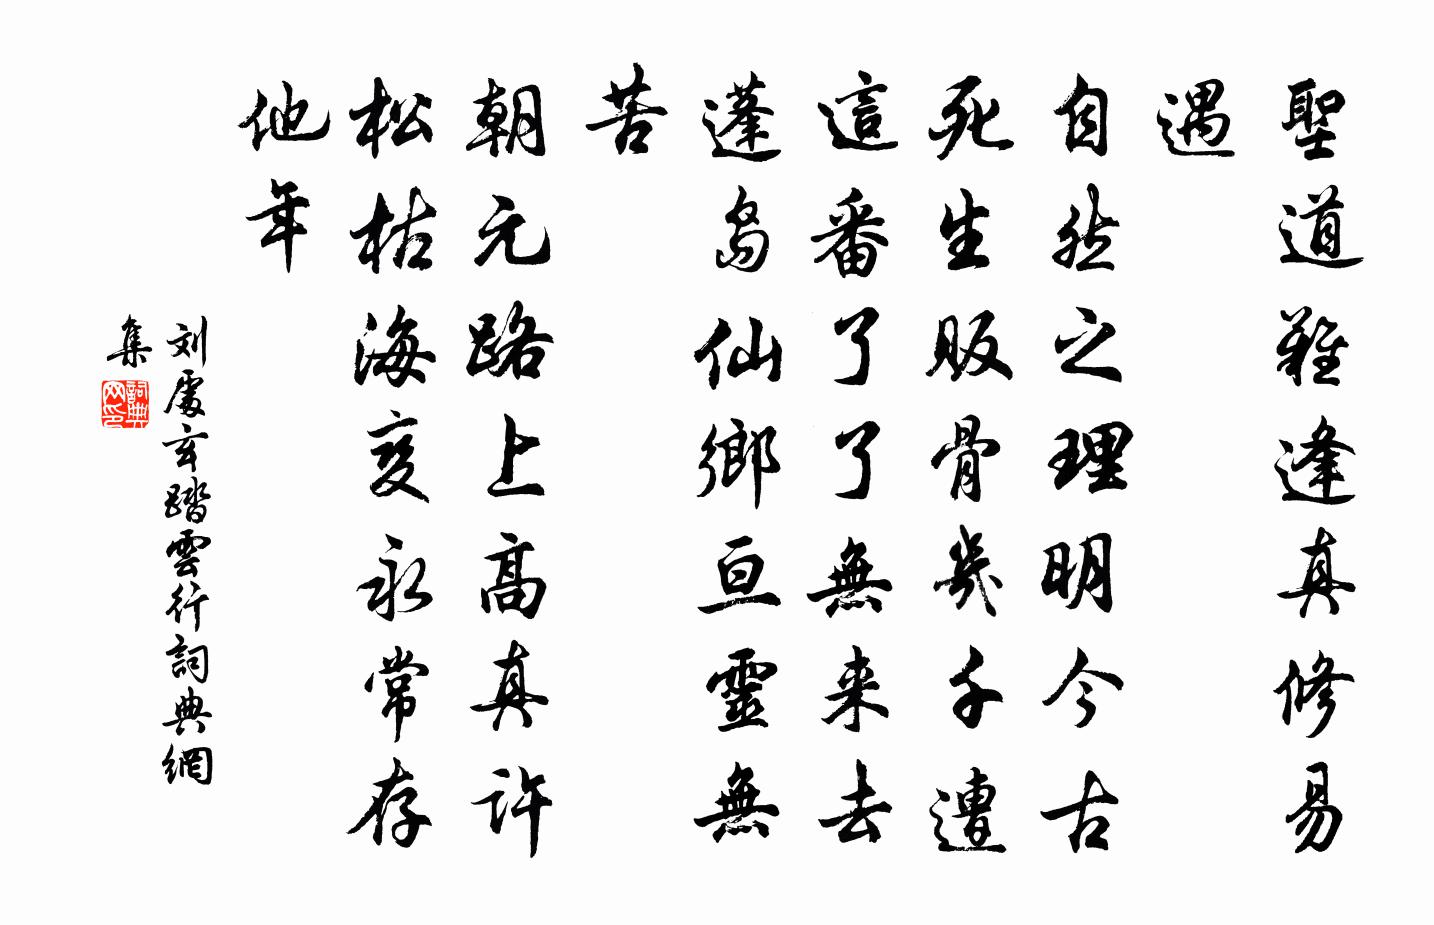 聖道難逢真修易
遇
自然之理明今古
死生販骨幾千遭
這番了了無来去
蓬島仙鄉亘靈無
苦
朝元路上高真許
松枯海变永常存
他年
刘處玄踏雲行詞典網
集
詞典網印